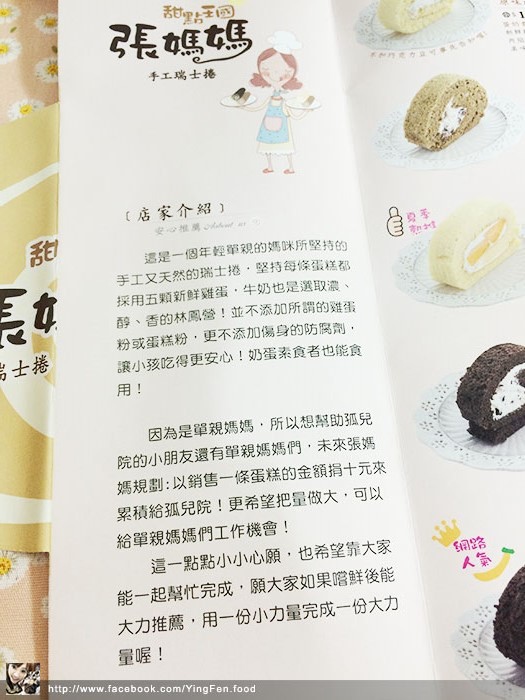 甜點王國
張媽媽
手工瑞士捲
〔店家介紹〕
安心推薦 About us
這是一個年輕單親的媽咪所堅持的
手工又天然的瑞士捲,堅持每條蛋糕都
採用五顆新鮮雞蛋,牛奶也是選取濃、
醇、香的林鳳營!並不添加所謂的雞蛋
粉或蛋糕粉,更不添加傷身的防腐劑,
讓小孩吃得更安心!奶蛋素食者也能食
用!
因為是單親媽媽,所以想幫助孤兒
院的小朋友還有單親媽媽們,未來張媽
媽規劃:以銷售一條蛋糕的金額捐十元來
累積給孤兒院!更希望把量做大,可以
給單親媽媽們工作機會!
這一點點小小心願,也希望靠大家
能一起幫忙完成,願大家如果嚐鮮後能
大力推薦,用一份小力量完成一份大力
量喔!
夏季
熱推
網路
人氣
甜
張媽
瑞士捲
http://www.facebook.com/YingFen.food